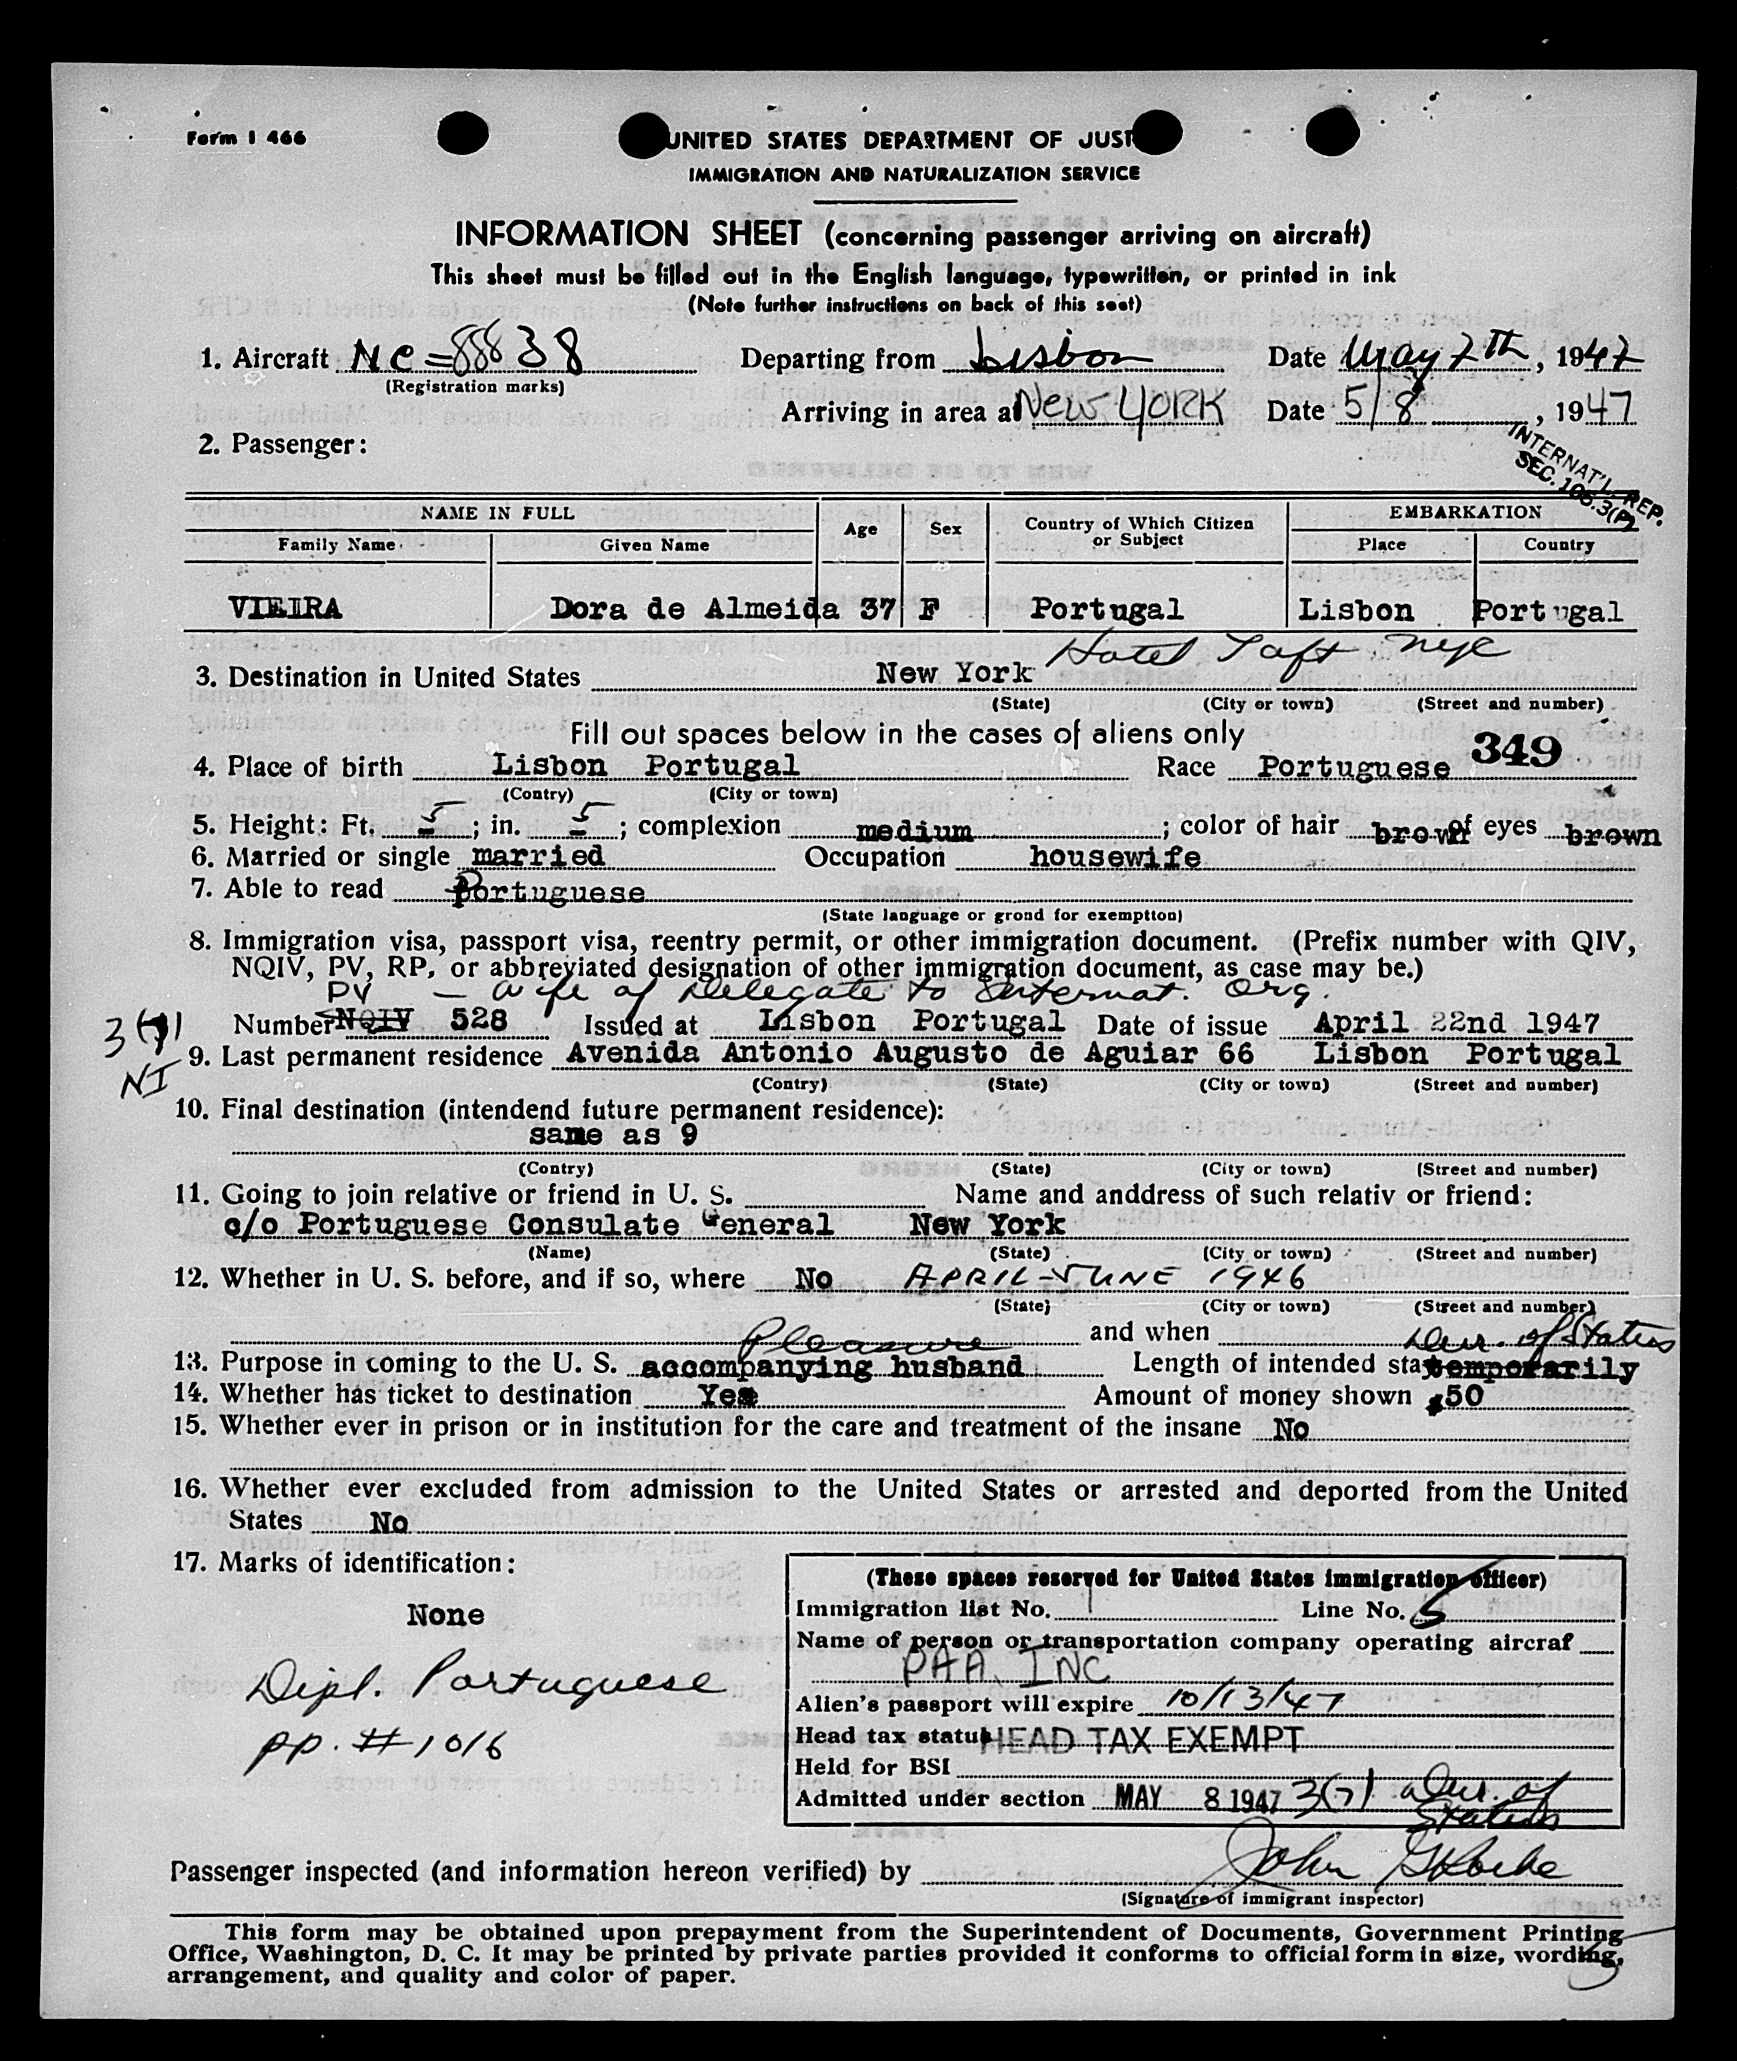 Form I 466
UNITED STATES DEPARTMENT OF JUST
IMMIGRATION AND NATURALIZATION SERVICE
INFORMATION SHEET (concerning passenger arriving on aircraft)
This sheet must be filled out in the English language, typewritten, or printed in ink
(Note further instructions on back of this seet)
1. Aircraft NC=88838 Departing from Lisbon Date May 7th, 1947
(Registration marks)
Arriving in area at New YORK Date 5/8, 1947
2. Passenger:
INTERNAT'L. REP.
SEC. 106.3(P)
NAME IN FULL Age Sex Country of Which Citizen or Subject EMBARKATION
Family Name. Given Name Place Country
VIEIRA Dora de Almeida 37 F Portugal Lisbon Portugal
3. Destination in United States New York Hotel Taft NYC
(State) (City or town) (Street and number)
Fill out spaces below in the cases of aliens only
349
4. Place of birth Lisbon Portugal Race Portuguese
(Contry) (City or town)
5. Height: Ft. 5; in. 5; complexion medium; color of hair brown of eyes brown
6. Married or single married Occupation housewife
7. Able to read Portuguese
(State language or grond for exemption)
8. Immigration visa, passport visa, reentry permit, or other immigration document. (Prefix number with QIV,
NQIV, PV, RP, or abbreviated designation of other immigration document, as case may be.)
PV — Wife of Delegate to Internat. Org.
3(7) Number NQIV 528 Issued at Lisbon Portugal Date of issue April 22nd 1947
NI 9. Last permanent residence Avenida Antonio Augusto de Aguiar 66 Lisbon Portugal
(Contry) (State) (City or town) (Street and number)
10. Final destination (intendend future permanent residence):
same as 9
(Contry) (State) (City or town) (Street and number)
11. Going to join relative or friend in U. S. Name and anddress of such relativ or friend:
c/o Portuguese Consulate General New York
(Name) (State) (City or town) (Street and number)
12. Whether in U. S. before, and if so, where No APRIL-JUNE 1946
(State) (City or town) (Street and number)
Pleasure and when Dur. of Status
13. Purpose in coming to the U. S. accompanying husband Length of intended stay temporarily
14. Whether has ticket to destination Yes Amount of money shown $50
15. Whether ever in prison or in institution for the care and treatment of the insane No
16. Whether ever excluded from admission to the United States or arrested and deported from the United
States No
17. Marks of identification:
None
Dipl. Portuguese
pp. # 1016
(These spaces reserved for United States immigration officer)
Immigration list No. 1 Line No. 5
Name of person or transportation company operating aircraf
PAA, INC
Alien's passport will expire 10/13/47
Head tax status HEAD TAX EXEMPT
Held for BSI
Admitted under section MAY 8 1947 3(7) Dur. of
Status
Passenger inspected (and information hereon verified) by John
(Signature of immigrant inspector)
This form may be obtained upon prepayment from the Superintendent of Documents, Government Printing
Office, Washington, D. C. It may be printed by private parties provided it conforms to official form in size, wording,
arrangement, and quality and color of paper.